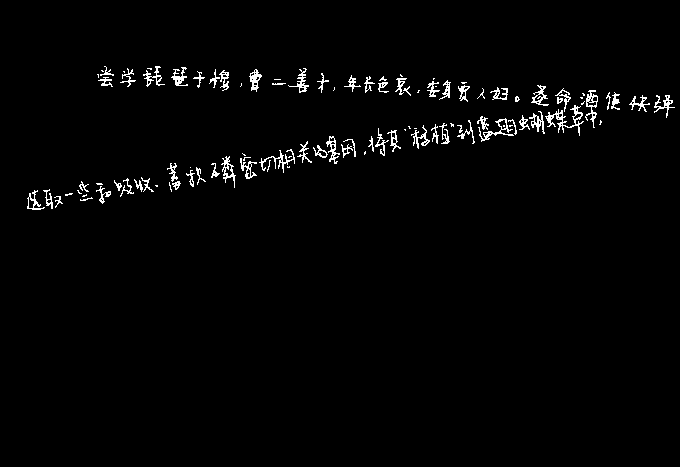 尝学琵琶于穆,曹二善才,年长色衰,委身贾人妇。遂命酒使快弹
选取一些和吸收、蓄积磷密切相关的基因,将其“移植”到蓝翅蝴蝶草中,